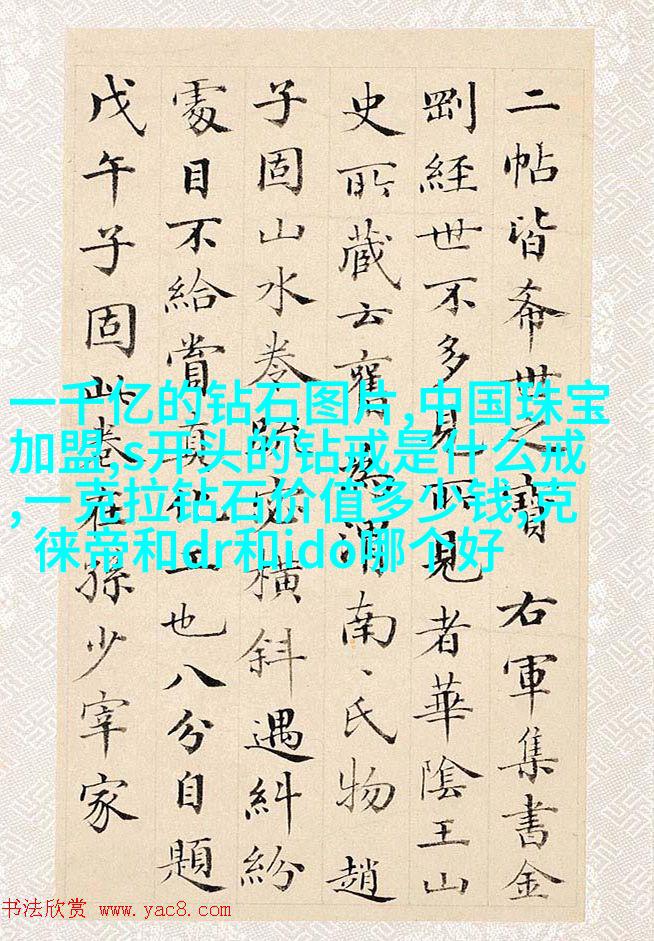 二帖皆希世之寶 右軍集書金
剛經世不多見所見者華陰王山
史所藏云舊為渭南、氏物趙
子固山水卷疏密橫斜遇糾紛
處目不給賞真化工也八分自題
戊午子固此卷在孫少宰家
一千亿的钻石图片,中国珠宝
加盟,s开头的钻戒是什么戒
,一克拉钻石价值多少钱,克
徕帝和dr和ido哪个好
书法欣赏 www.yac8.com